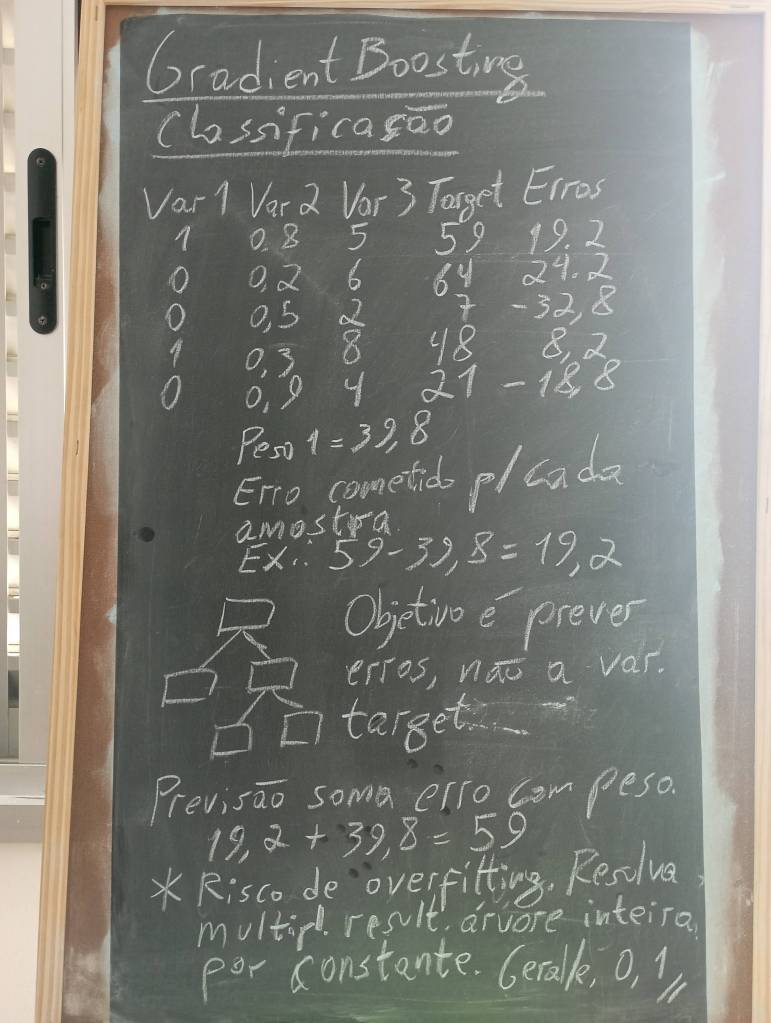 Gradient Boosting
Classificação
Var 1 Var 2 Var 3 Target Erros
1 0,8 5 59 19.2
0 0,2 6 64 24.2
0 0,5 2 7 -32,8
1 0,3 8 48 8,2
0 0,9 4 21 -18,8
Peso 1 = 39,8
Erro cometido p/ cada
amostra.
EX.: 59-39,8 = 19,2
Objetivo é prever
erros, não a var.
target.
Previsão soma erro com peso.
19,2 + 39,8 = 59
* Risco de overfitting. Resolva
multipl. result. árvore inteira
por constante. Geral/e, 0,1,,